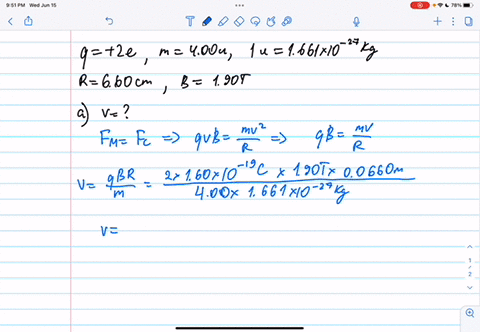 9:51 PM Wed Jun 15
78%
q = +2e , m = 4.00u , 1u = 1.661×10⁻²⁷ kg
R = 6.60 cm , B = 1.90T
a) v = ?
F_M = F_C => qvB = mv²/R => qB = mv/R
v = qBR/m = 2 × 1.60×10⁻¹⁹ C × 1.90T × 0.0660m / 4.00 × 1.661 × 10⁻²⁷ kg
v =
1
/
2